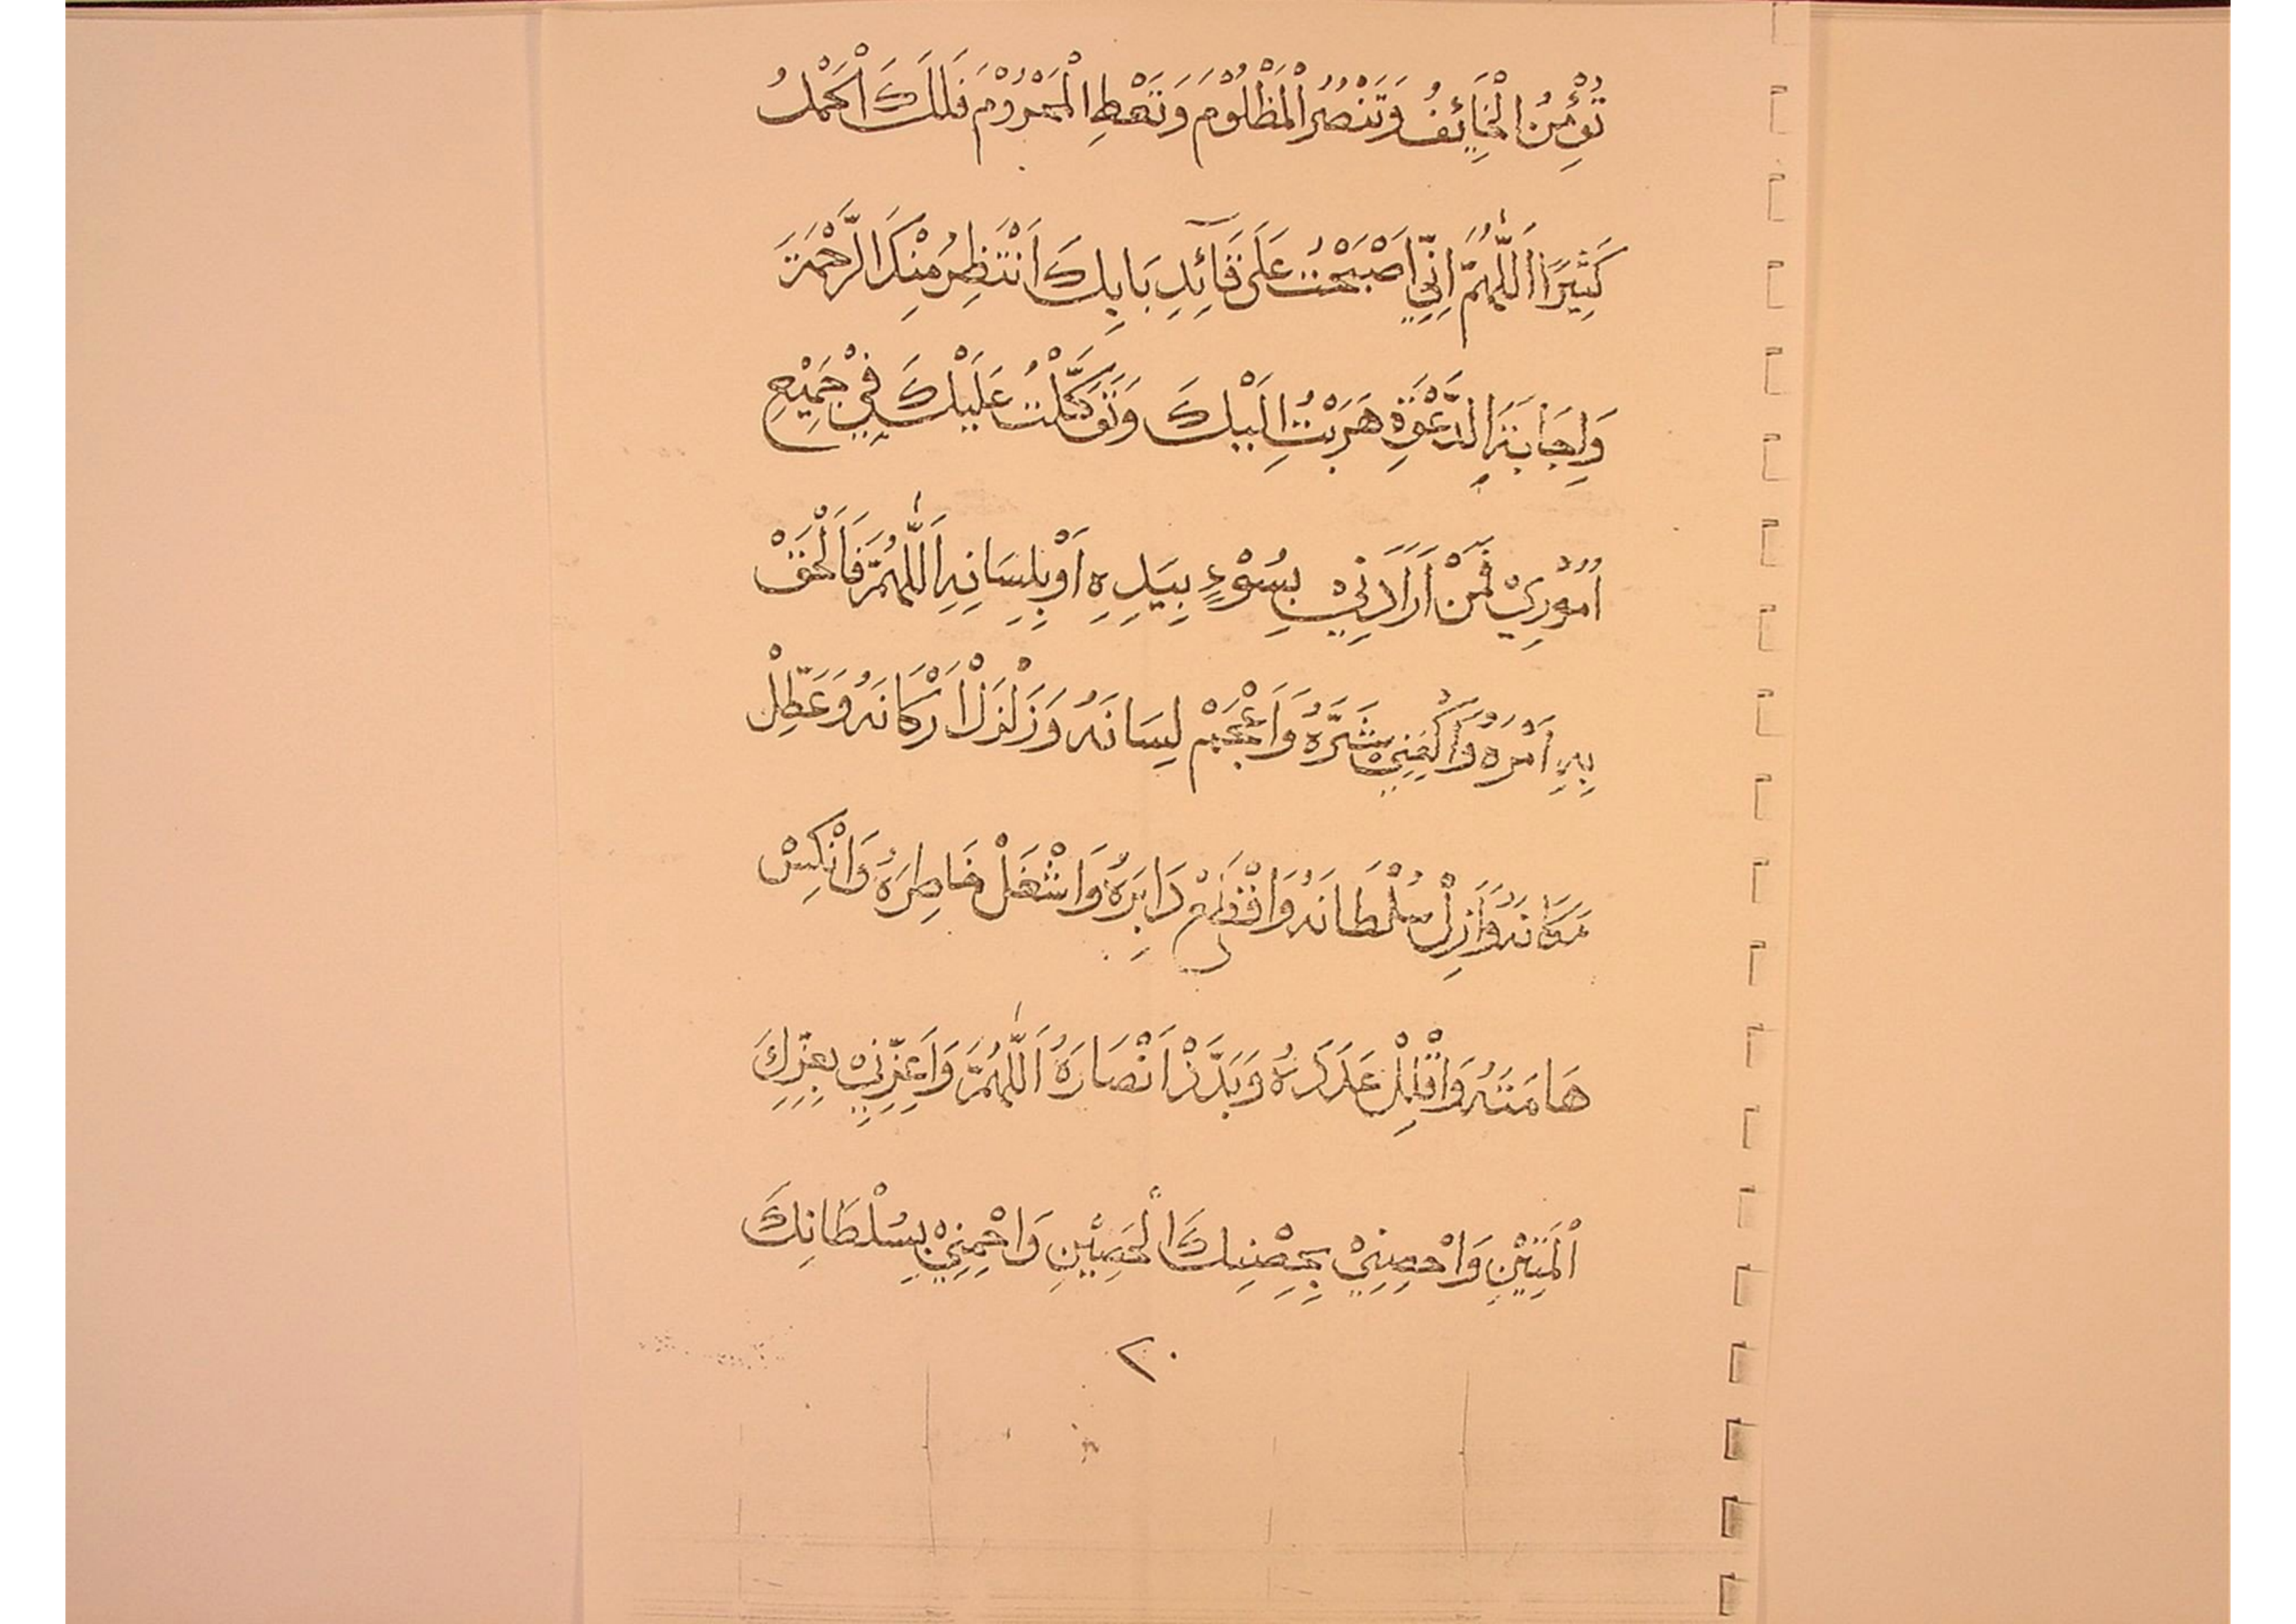 تُؤْمِنُ الْخَائِفُ وَتَنْصُرُ الْمَظْلُوْمَ وَتَعْطِ الْمَحْرُوْمَ فَلَكَ الْحَمْدُ
كَثِيْرًا اَللّٰهُمَّ اِنِّيْ اَصْبَحْتُ عَلَى قَآئِدِ بَابِكَ اَنْتَظِرُ مِنْكَ الرَّحْمَةَ
وَاِجَابَةَ الدَّعْوَةِ هَرَبْتُ اِلَيْكَ وَتَوَكَّلْتُ عَلَيْكَ فِيْ جَمِيْعِ
اُمُوْرِيْ فَمَنْ اَرَادَنِيْ بِسُوْءٍ بِيَدِهِ اَوْ بِلِسَانِهِ اَللّٰهُمَّ فَالْحَقْ
بِهِ اَمْرَهُ وَاكْفِنِيْ شَرَّهُ وَاَعْجِمْ لِسَانَهُ وَزَلْزَلْ اَرْكَانَهُ وَعَطِّلْ
مَكَانَهُ وَاَزِلْ سُلْطَانَهُ وَاقْطَعْ دَابِرَهُ وَاشْغَلْ خَاطِرَهُ وَانْكِسْ
هَامَتَهُ وَاقْلِلْ عَدَدَهُ وَبَدَّدْ اَنْصَارَهُ اَللّٰهُمَّ وَاَعِزِّنِيْ بِعِزِّكَ
الْمَتِيْنِ وَاحْصِنِيْ بِحِصْنِكَ الْحَصِيْنِ وَاحْمِنِيْ بِسُلْطَانِكَ
٢٠